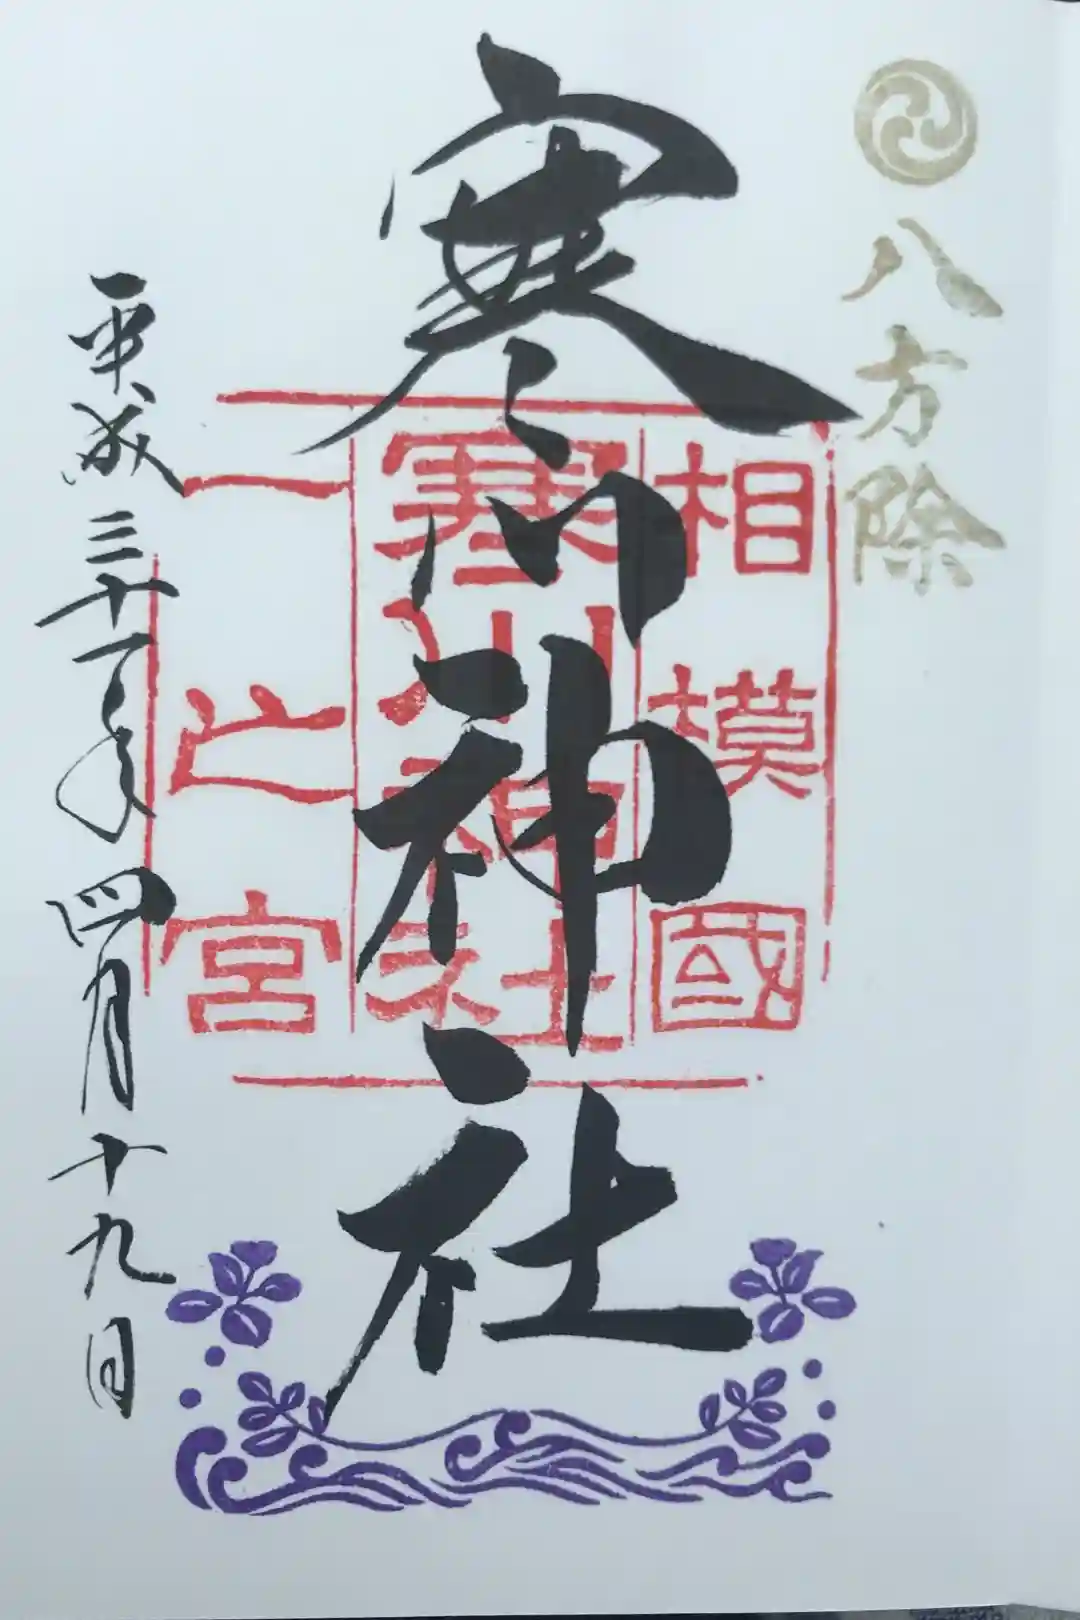 八方除
寒川神社
相模國
寒川神社
一之宮
平成三十一年四月十九日